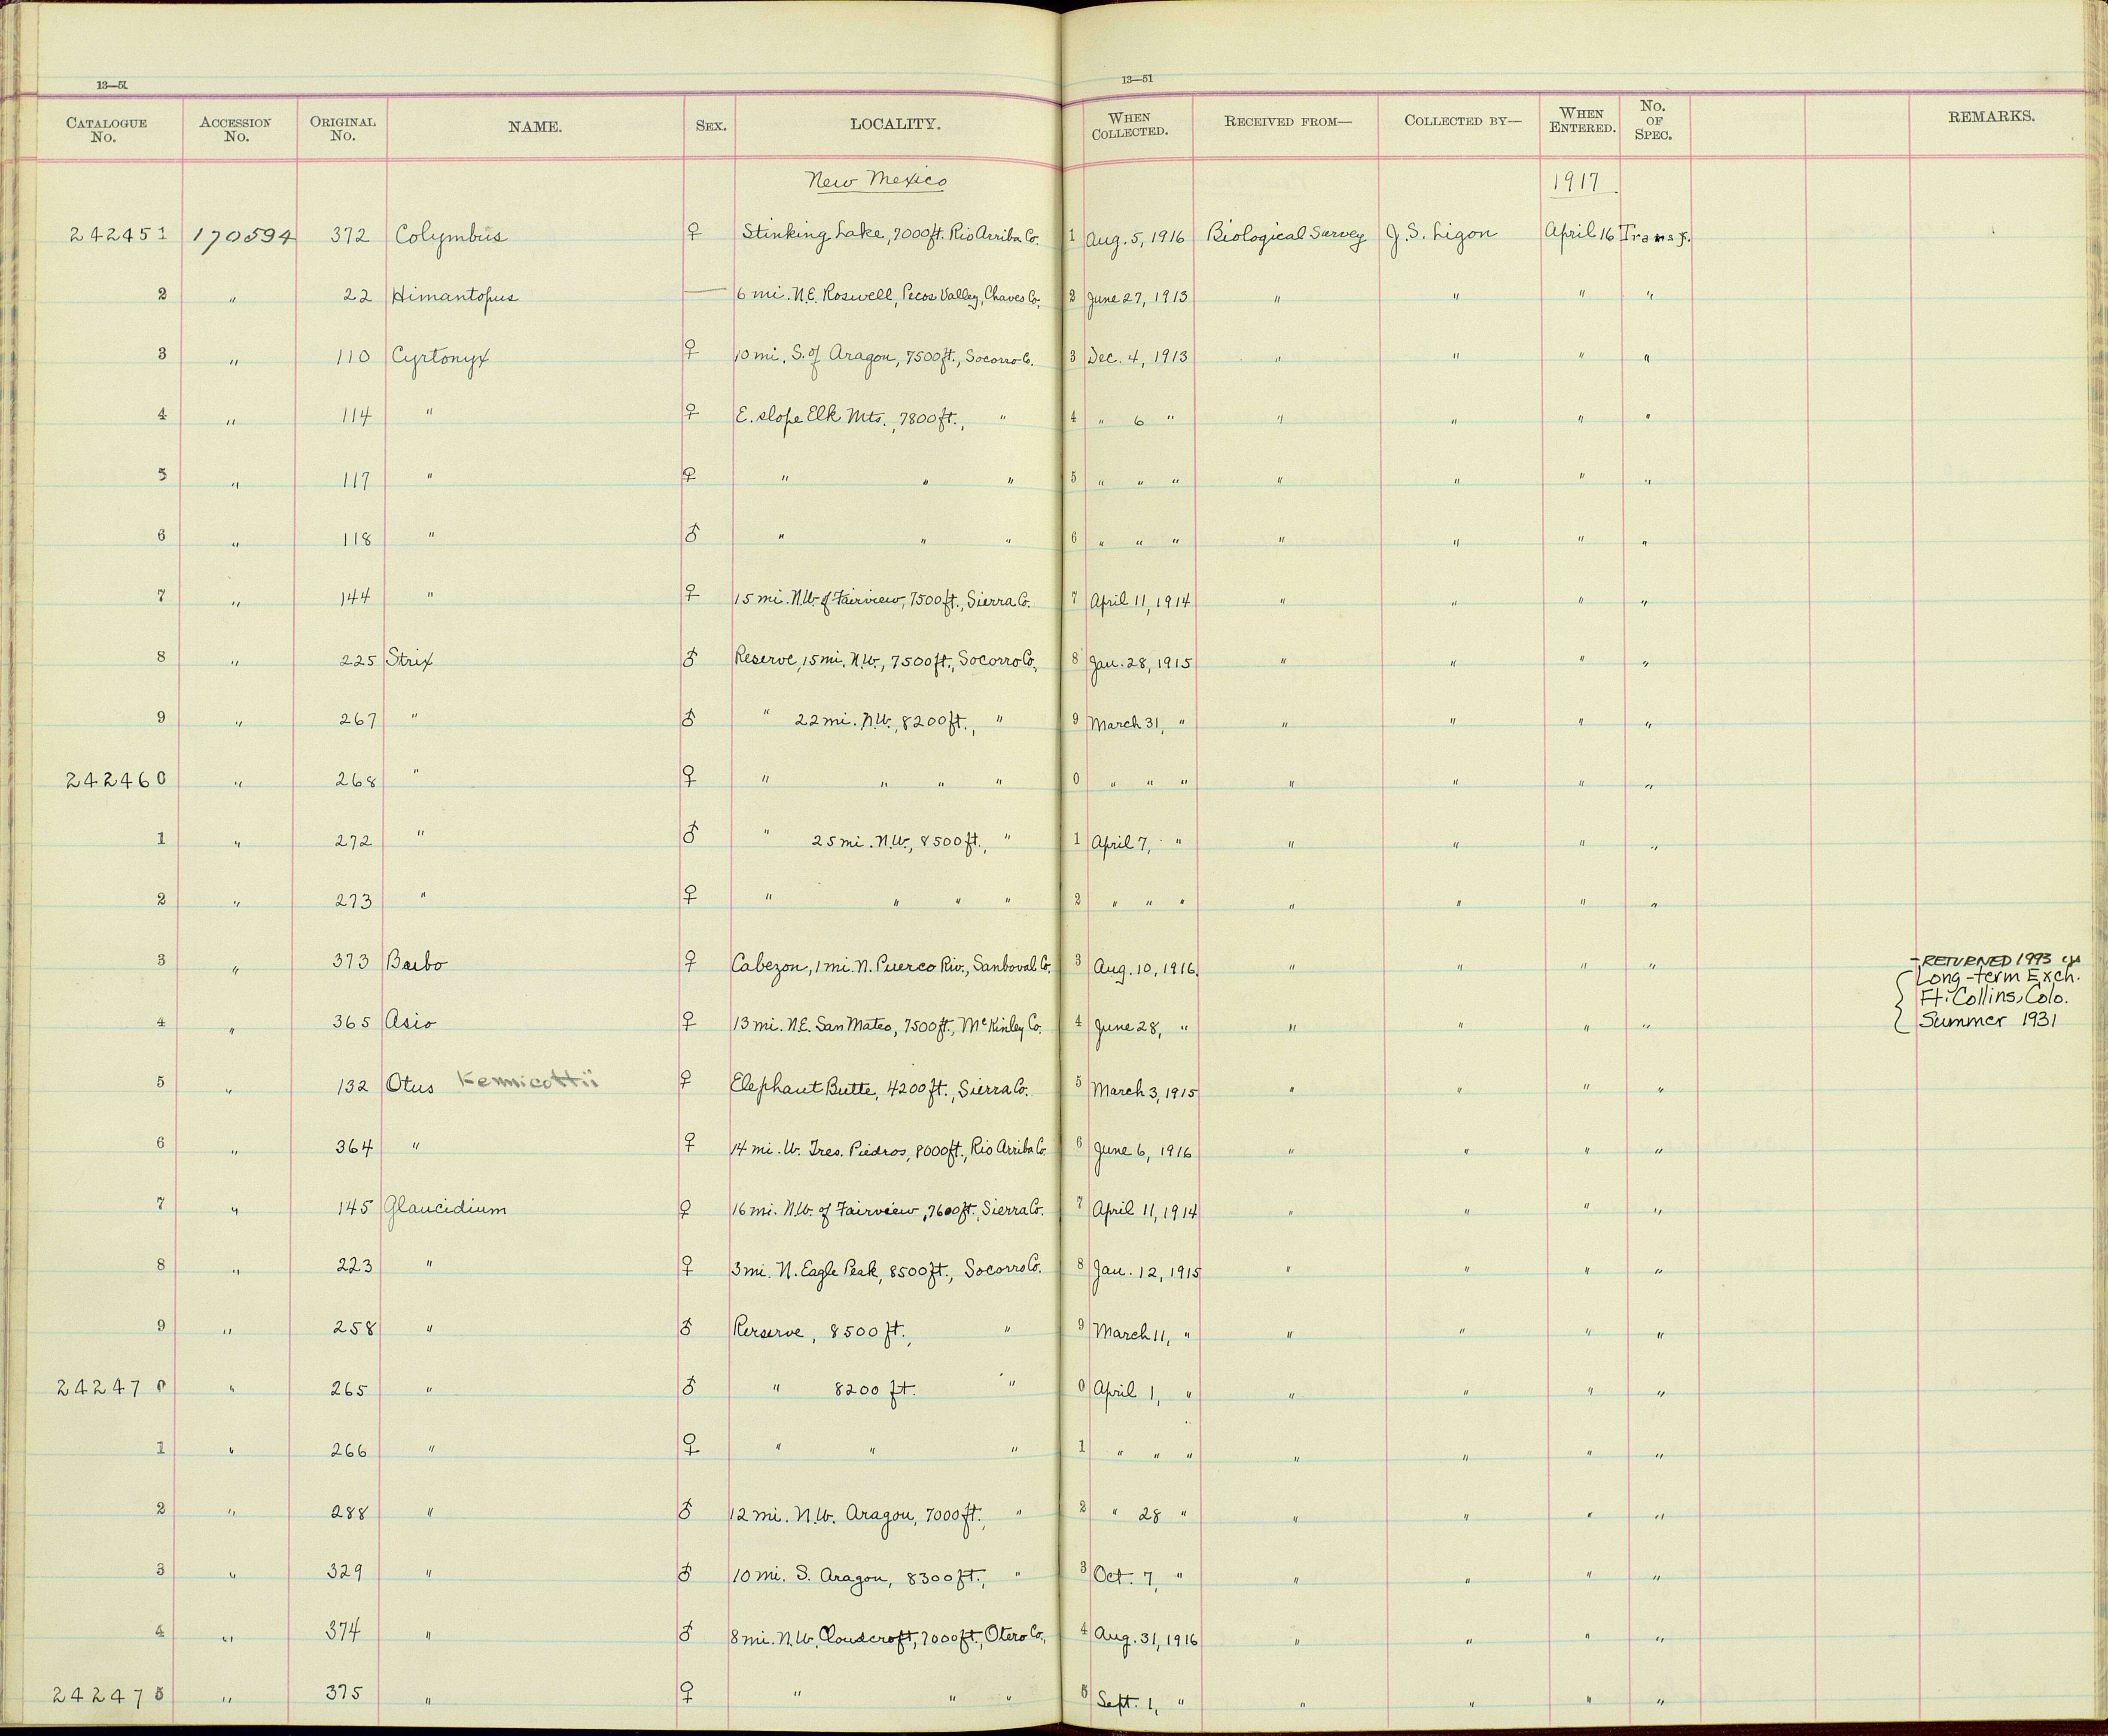 13—51 13—51
CATALOGUE No. ACCESSION No. ORIGINAL No. NAME. SEX. LOCALITY. WHEN COLLECTED. RECEIVED FROM— COLLECTED BY— WHEN ENTERED. No. OF SPEC. REMARKS.
New Mexico 1917
242451 170594 372 Colymbus ♀ Stinking Lake, 7000ft. Rio Arriba Co. 1 Aug. 5, 1916 Biological Survey J. S. Ligon April 16 Transf.
2 " 22 Himantopus — 6 mi. N.E. Roswell, Pecos Valley, Chaves Co. 2 June 27, 1913 " " " "
3 " 110 Cyrtonyx ♀ 10 mi. S. of Aragon, 7500ft., Socorro Co. 3 Dec. 4, 1913 " " " "
4 " 114 " ♀ E. slope Elk Mts., 7800ft., " 4 " 6 " " " " "
5 " 117 " ♀ " " " 5 " " " " " " "
6 " 118 " ♂ " " " 6 " " " " " " "
7 " 144 " ♀ 15 mi. N.W. of Fairview, 7500ft., Sierra Co. 7 April 11, 1914 " " " "
8 " 225 Strix ♂ Reserve, 15 mi. N.W., 7500ft., Socorro Co. 8 Jan. 28, 1915 " " " "
9 " 267 " ♂ " 22 mi. N.W., 8200ft., " 9 March 31, " " " " "
242460 " 268 " ♀ " " " " 0 " " " " " " "
1 " 272 " ♂ " 25 mi. N.W., 8500ft., " 1 April 7, " " " " "
2 " 273 " ♀ " " " " 2 " " " " " " "
3 " 373 Bubo ♀ Cabezon, 1 mi. N. Puerco Riv., Sandoval Co. 3 Aug. 10, 1916. " " " " - RETURNED 1993
Long-term Exch.
Ft. Collins, Colo.
4 " 365 Asio ♀ 13 mi. N.E. San Mateo, 7500ft., McKinley Co. 4 June 28, " " " " " Summer 1931
5 " 132 Otus Kennicottii ♀ Elephant Butte, 4200ft., Sierra Co. 5 March 3, 1915 " " " "
6 " 364 " ♀ 14 mi. W. Tres. Piedros, 8000ft., Rio Arriba Co. 6 June 6, 1916 " " " "
7 " 145 Glaucidium ♀ 16 mi. N.W. of Fairview, 7600ft., Sierra Co. 7 April 11, 1914 " " " "
8 " 223 " ♀ 3 mi. N. Eagle Peak, 8500ft., Socorro Co. 8 Jan. 12, 1915 " " " "
9 " 258 " ♂ Rerserve, 8500 ft., " 9 March 11, " " " " "
242470 " 265 " ♂ " 8200 ft. " 0 April 1, " " " " "
1 " 266 " ♀ " " " 1 " " " " " " "
2 " 288 " ♂ 12 mi. N.W. Aragon, 7000ft., " 2 " 28 " " " " "
3 " 329 " ♂ 10 mi. S. Aragon, 8300ft., " 3 Oct. 7, " " " " "
4 " 374 " ♂ 8 mi. N.W. Cloudcroft, 7000ft., Otero Co., 4 Aug. 31, 1916 " " " "
242475 " 375 " ♀ " " " 5 Sept. 1, " " " " "